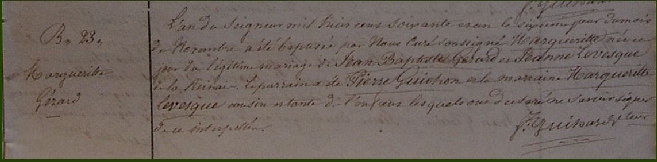 B. 23.
Marguerite
Gérard
L'an du Seigneur mil huit cens soixante et un le sixieme jour du mois
de Novembre a été baptisée par Nous Curé soussigné Margueritte née ce
jour du légitime mariage de Jean Baptiste Gérard et Jeanne Levesque
de la Le parrain a été Pierre Guichon et la marraine Margueritte
Levesque cousin et tante de l'enfant lesquels ont déclaré ne savoir signer
de ce interpellés.
f. Guihard